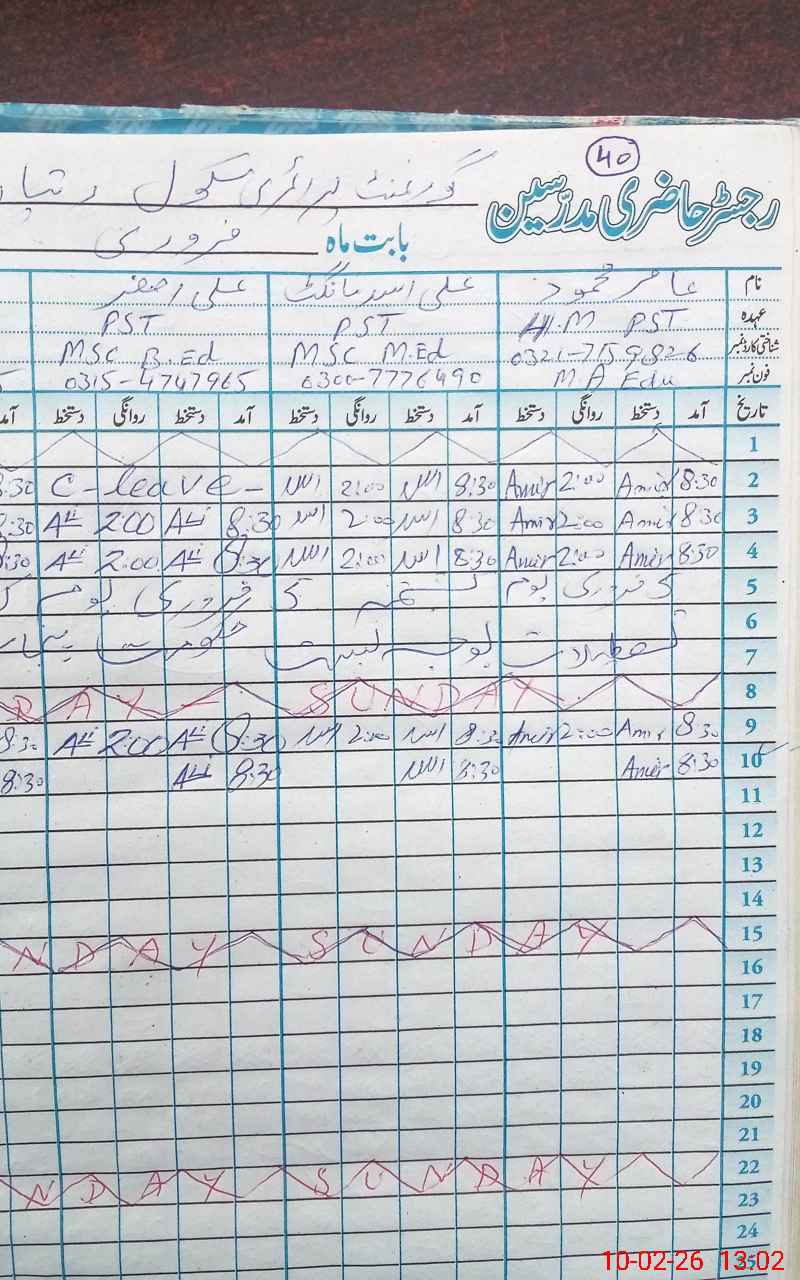 40
رجسٹر حاضری مدرّسین
گورنمنٹ پرائمری سکول
بابت ماہ فروری
نام عامر محمود علی اسد مانگٹ علی اصغر
عہدہ H.M PST PST PST
شناختی کارڈ نمبر 0321-7159826 MSC M.Ed MSC B.Ed
فون نمبر M.A Edu 0300-7776490 0315-4747965
تاریخ آمد دستخط روانگی دستخط آمد دستخط روانگی دستخط آمد دستخط روانگی دستخط آمد
1
2 8:30 Amir 2:00 Amir 8:30 اسد 2:00 اسد C-leave- 8:30
3 8:30 Amir 2:00 Amir 8:30 اسد 2:00 اسد 8:30 Ali 2:00 Ali 8:30
4 8:30 Amir 2:00 Amir 8:30 اسد 2:00 اسد 8:30 Ali 2:00 Ali 8:30
5 فروری یوم فروری یوم
6
7 تعطیلات بوجہ بسنت حکومت
8 SUNDAY - DAY
9 8:30 Amir 2:00 Amir 8:30 اسد 2:00 اسد 8:30 Ali 2:00 Ali 8:30
10 8:30 Amir 8:30 اسد 8:30 Ali 8:30
11
12
13
14
15 SUNDAY NDAY
16
17
18
19
20
21
22 SUNDAY NDAY
23
24
25
10-02-26 13:02